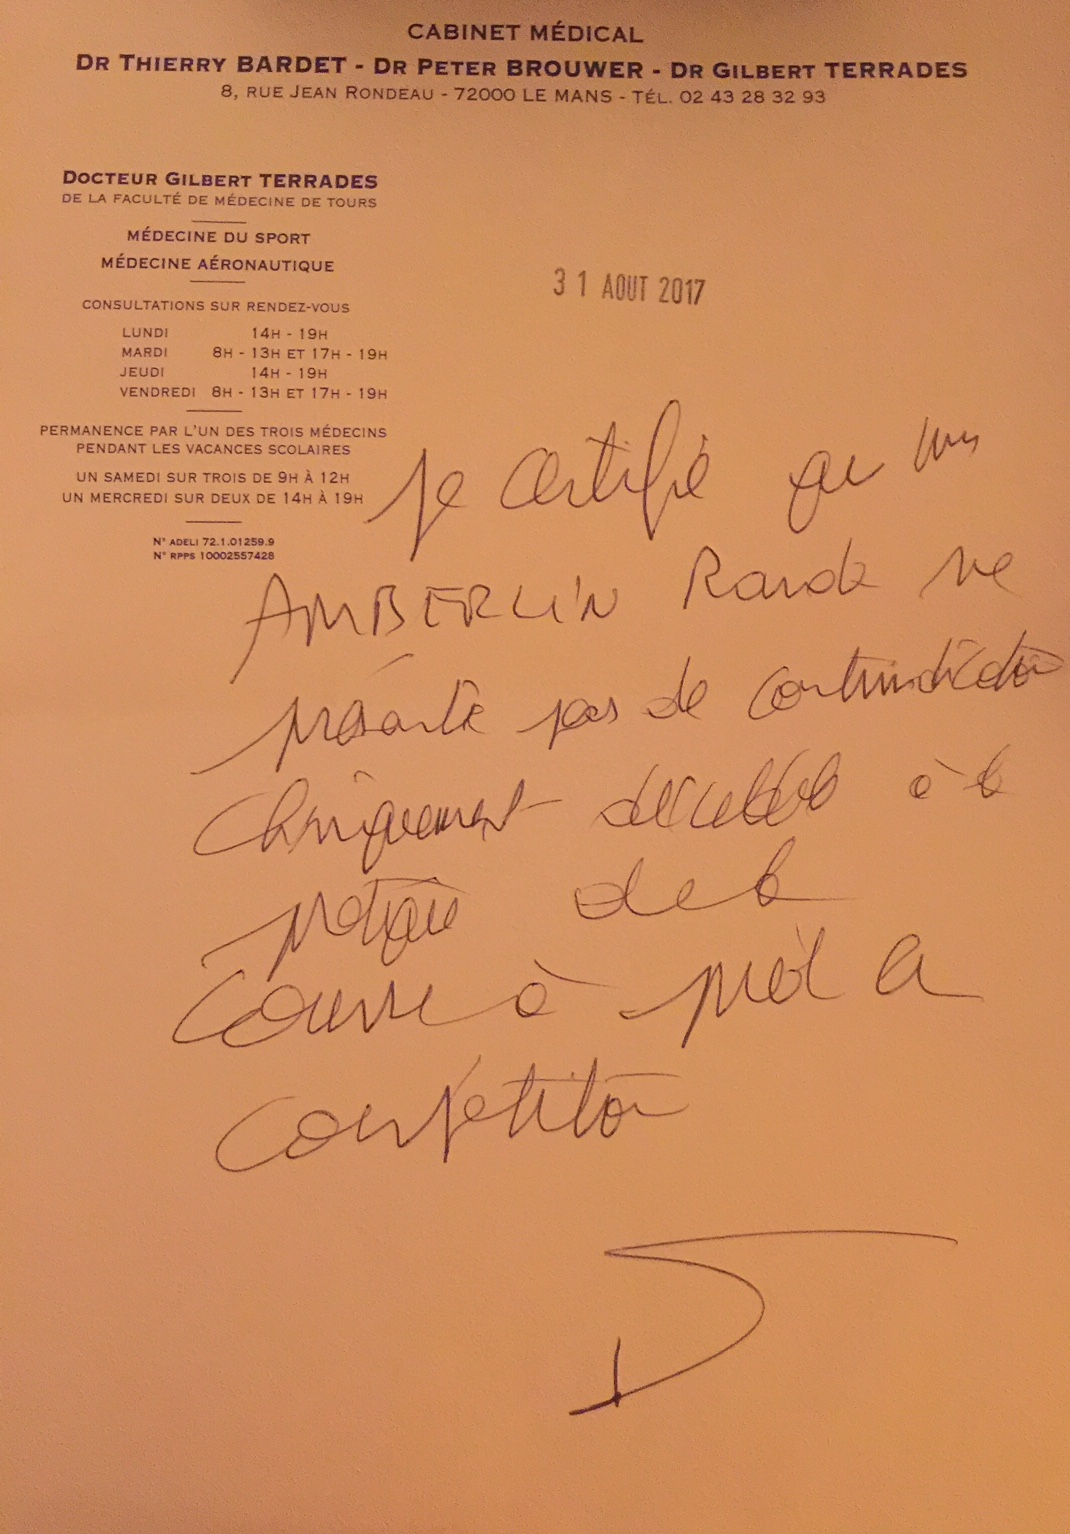 CABINET MÉDICAL
DR THIERRY BARDET - DR PETER BROUWER - DR GILBERT TERRADES
8, RUE JEAN RONDEAU - 72000 LE MANS - TÉL. 02 43 28 32 93
DOCTEUR GILBERT TERRADES
DE LA FACULTÉ DE MÉDECINE DE TOURS
MÉDECINE DU SPORT
MÉDECINE AÉRONAUTIQUE
CONSULTATIONS SUR RENDEZ-VOUS
LUNDI 14H - 19H
MARDI 8H - 13H ET 17H - 19H
JEUDI 14H - 19H
VENDREDI 8H - 13H ET 17H - 19H
PERMANENCE PAR L'UN DES TROIS MÉDECINS
PENDANT LES VACANCES SCOLAIRES
UN SAMEDI SUR TROIS DE 9H À 12H
UN MERCREDI SUR DEUX DE 14H À 19H
N° ADELI 72.1.01259.9
N° RPPS 10002557428
31 AOUT 2017
Je certifie que
AMBERLIN ne
présente pas de contrindication
cliniquement décelable à la
pratique de la
course à pied
compétition